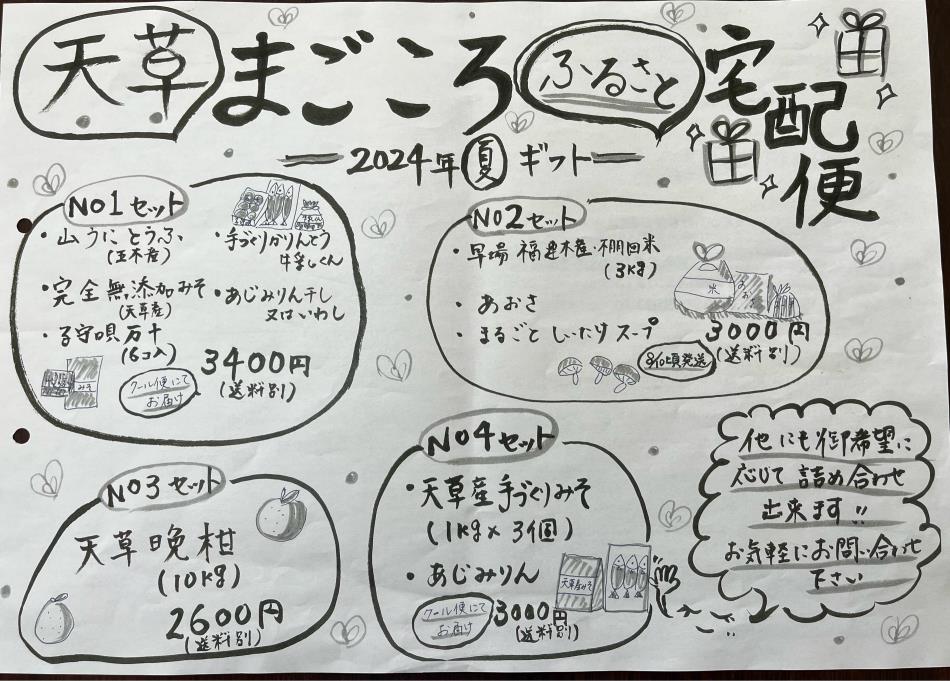 天草まごころふるさと宅配便
2024年 夏 ギフト
No1セット
・山うにとうふ
(五木産)
・完全無添加みそ
(天草産)
・子守唄万十
(6コ入)
・手づくりかりんとう
牛乳しくん
・あじみりん干し
又はいわし
3400円
(送料別)
クール便にて
お届け
みそ
No2セット
・早場 福連木産・棚田米
(3kg)
・あおさ
・まるごと しいたけスープ
3000円
(送料別)
8/10頃発送
米
No3セット
天草晩柑
(10kg)
2600円
(送料別)
No4セット
・天草産手づくりみそ
(1kg×3個)
・あじみりん
クール便にて
お届け
3000円
(送料別)
天草産みそ
他にも御希望に
応じて詰め合わせ
出来ます!!
お気軽にお問い合わせ
下さい